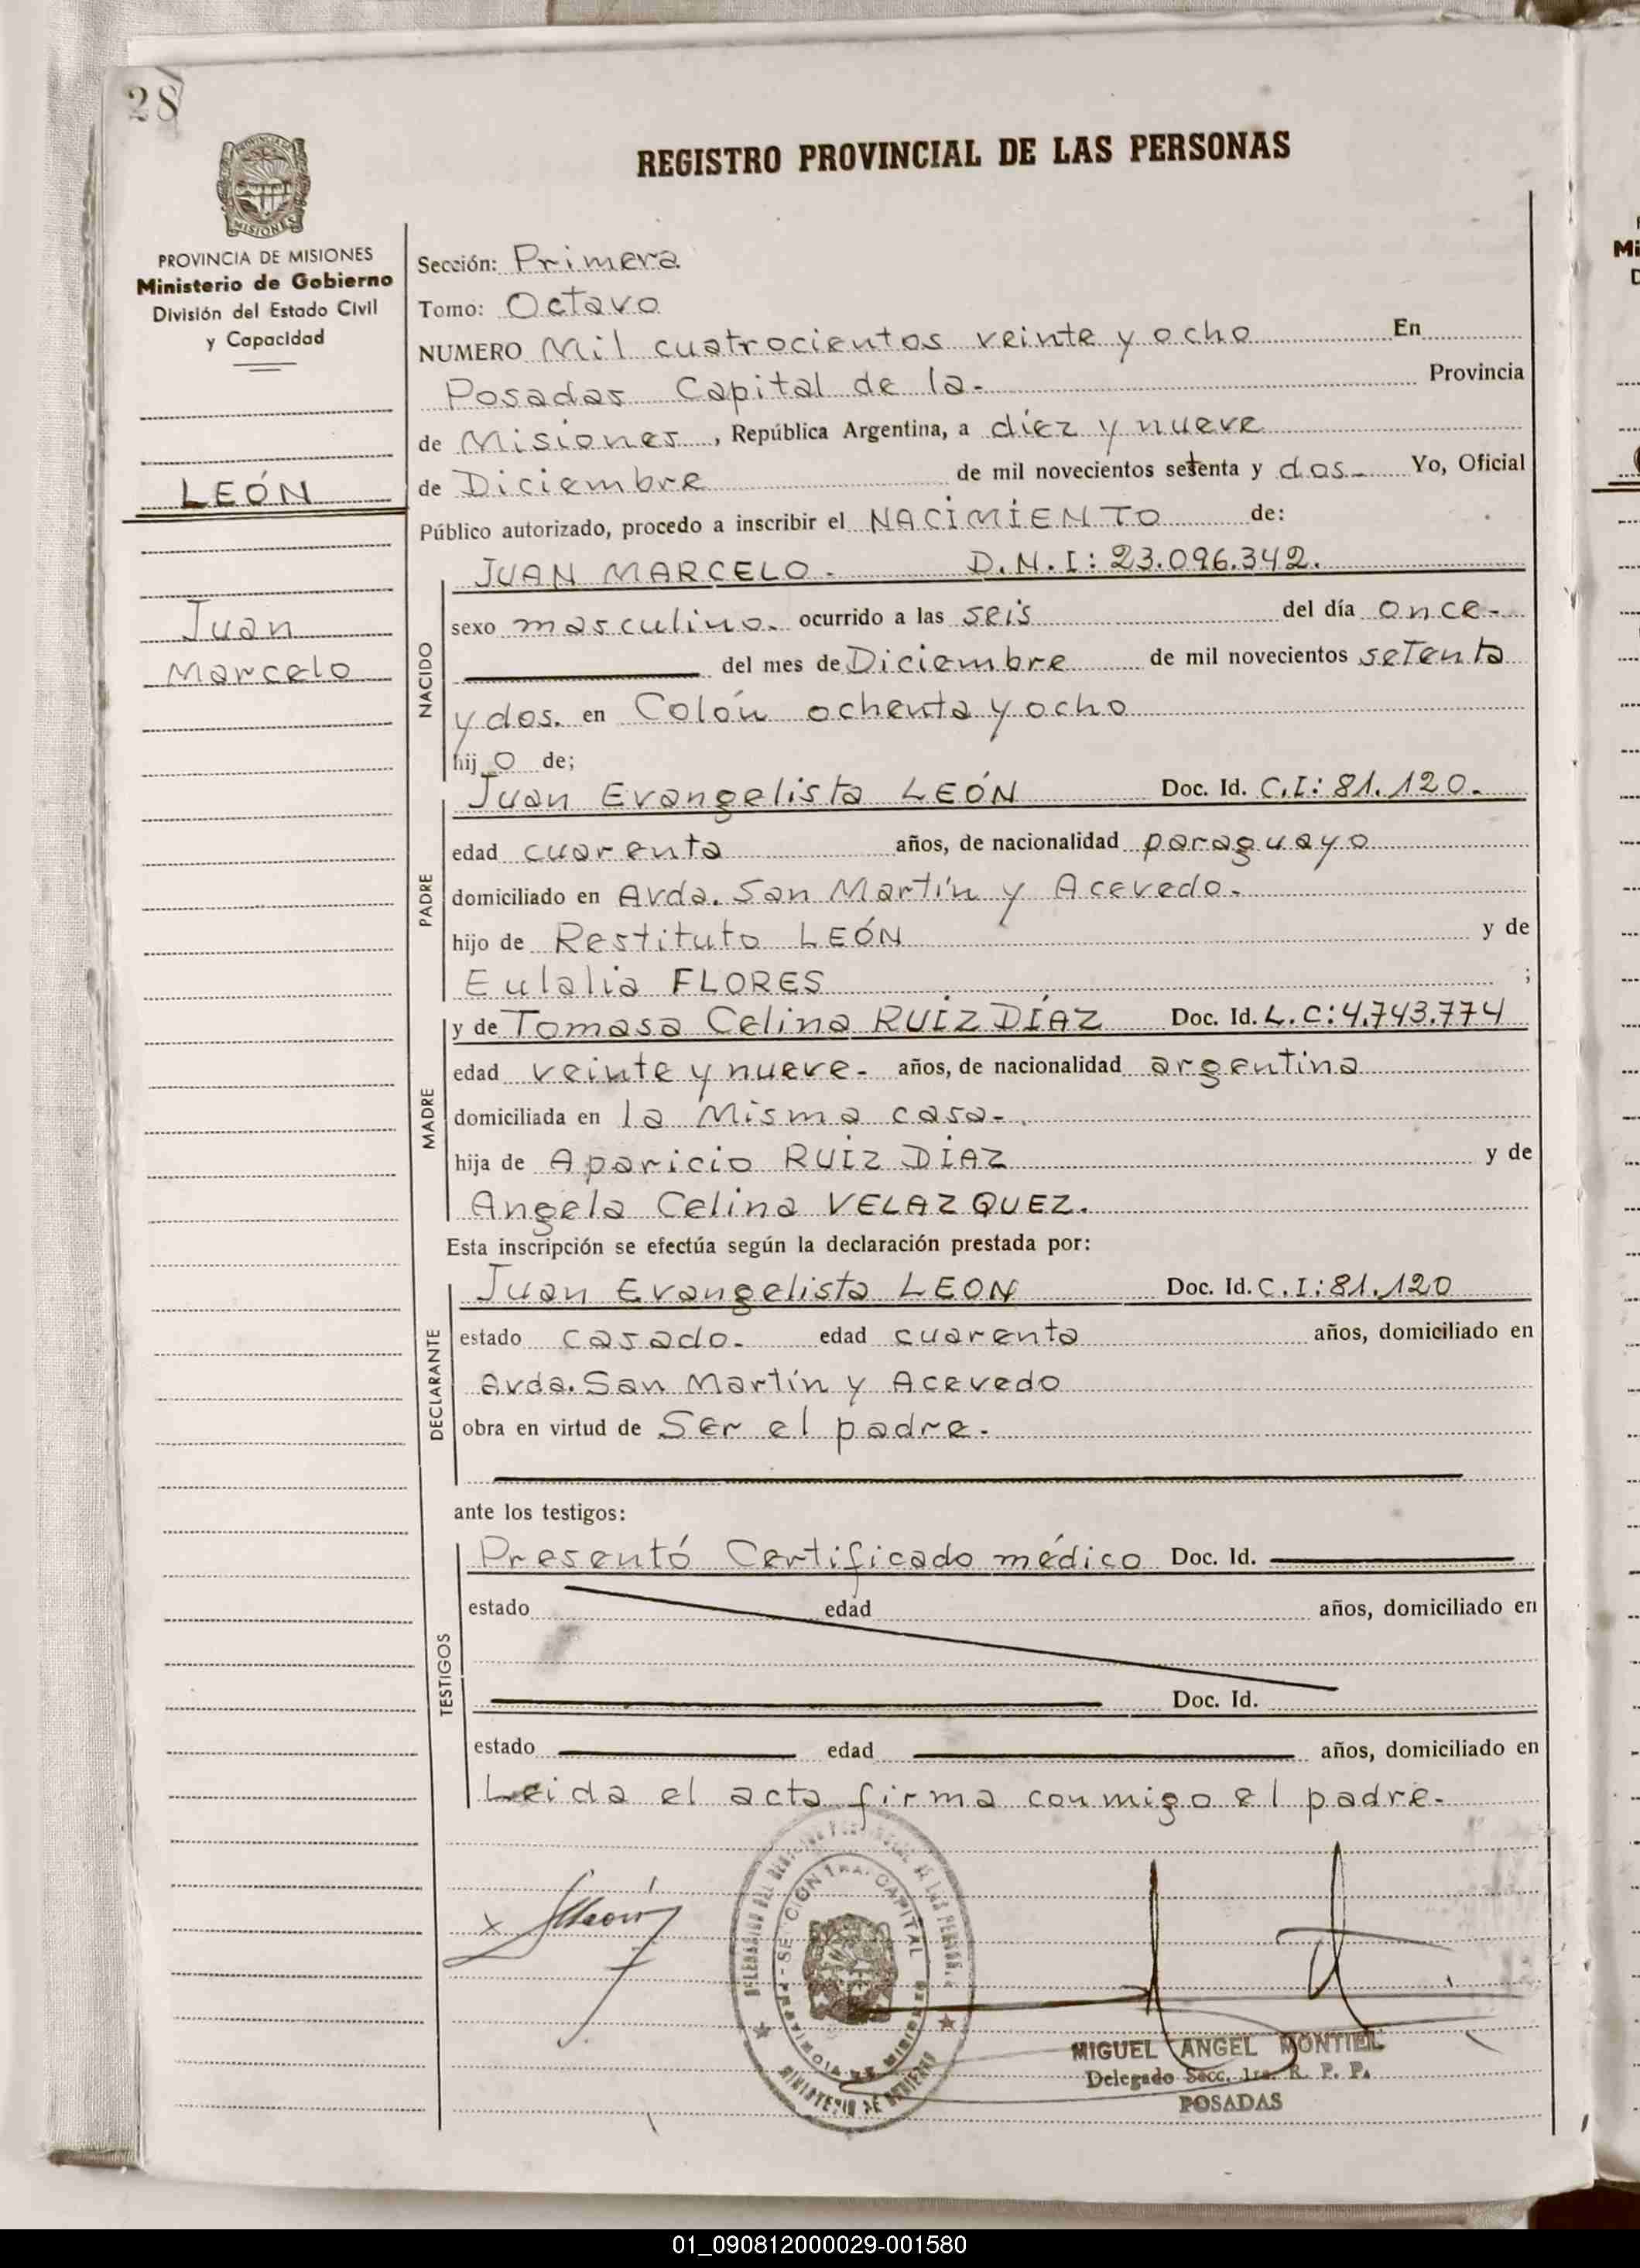 28
REGISTRO PROVINCIAL DE LAS PERSONAS
MISIONES
PROVINCIA DE MISIONES
Ministerio de Gobierno
División del Estado Civil
y Capacidad
LEÓN
Juan
Marcelo
Sección: Primera
Tomo: Octavo
NUMERO Mil cuatrocientos veinte y ocho En
Posadas Capital de la- Provincia
de Misiones, República Argentina, a diez y nueve
de Diciembre de mil novecientos setenta y dos- Yo, Oficial
Público autorizado, procedo a inscribir el NACIMIENTO de:
NACIDO
JUAN MARCELO. D.N.I: 23.096.342.
sexo masculino. ocurrido a las seis del día once-
del mes de Diciembre de mil novecientos setenta
y dos. en Colón ochenta y ocho
hij o de;
PADRE
Juan Evangelista LEÓN Doc. Id. C.I: 81.120.
edad cuarenta años, de nacionalidad paraguayo
domiciliado en Avda. San Martín y Acevedo.
hijo de Restituto LEÓN y de
Eulalia FLORES ;
MADRE
y de Tomasa Celina RUIZ DÍAZ Doc. Id. L.C: 4.743.774
edad veinte y nueve- años, de nacionalidad argentina
domiciliada en la Misma casa-.
hija de Aparicio RUIZ DIAZ y de
Angela Celina VELAZQUEZ.
Esta inscripción se efectúa según la declaración prestada por:
DECLARANTE
Juan Evangelista LEON Doc. Id. C.I: 81.120
estado casado- edad cuarenta años, domiciliado en
Avda. San Martín y Acevedo
obra en virtud de Ser el padre.
ante los testigos:
TESTIGOS
Presentó Certificado médico Doc. Id.
estado edad años, domiciliado en
Doc. Id.
estado edad años, domiciliado en
Leida el acta firma conmigo el padre-
SECCION 1RA. CAPITAL
MINISTERIO DE GOBIERNO
MIGUEL ANGEL MONTIEL
Delegado Secc. 1ra. R. P. P.
POSADAS
01_090812000029-001580